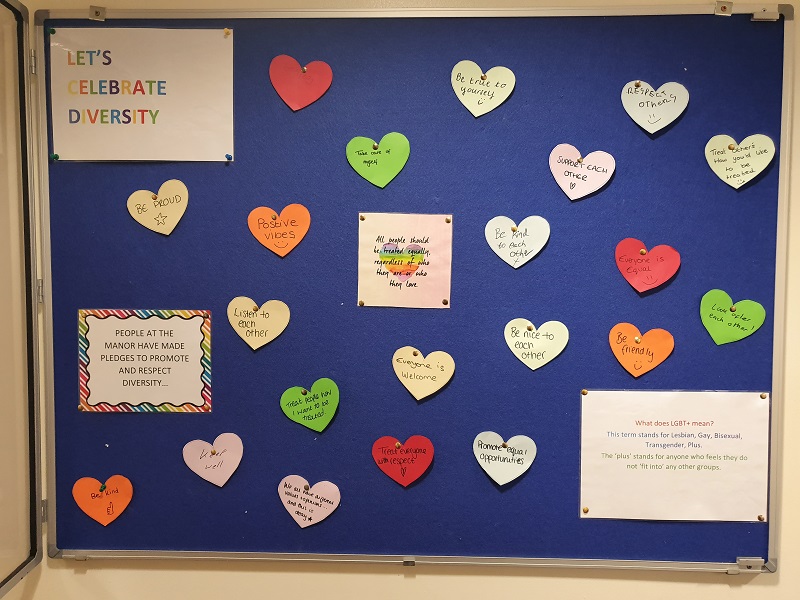 LET'S
CELEBRATE
DIVERSITY
Be true to
yourself
RESPECT
OTHERS
Take care of
myself
SUPPORT EACH
OTHER
Treat others
How you'd like
to be
treated
BE PROUD
Positive
vibes
All people should
be treated equally,
regardless of who
they are or who
they love
Be kind
to each
other
Everyone is
equal
Listen to
each
other
Be nice to
each
other
Be
friendly
Look after
each other!
PEOPLE AT THE
MANOR HAVE MADE
PLEDGES TO PROMOTE
AND RESPECT
DIVERSITY...
Everyone is
Welcome
Treat people how
I want to be
treated
What does LGBT+ mean?
This term stands for Lesbian, Gay, Bisexual,
Transgender, Plus.
The 'plus' stands for anyone who feels they do
not 'fit into' any other groups.
well
Treat everyone
with respect
Promote equal
opportunities
Be kind
We all have different
and this is
okay